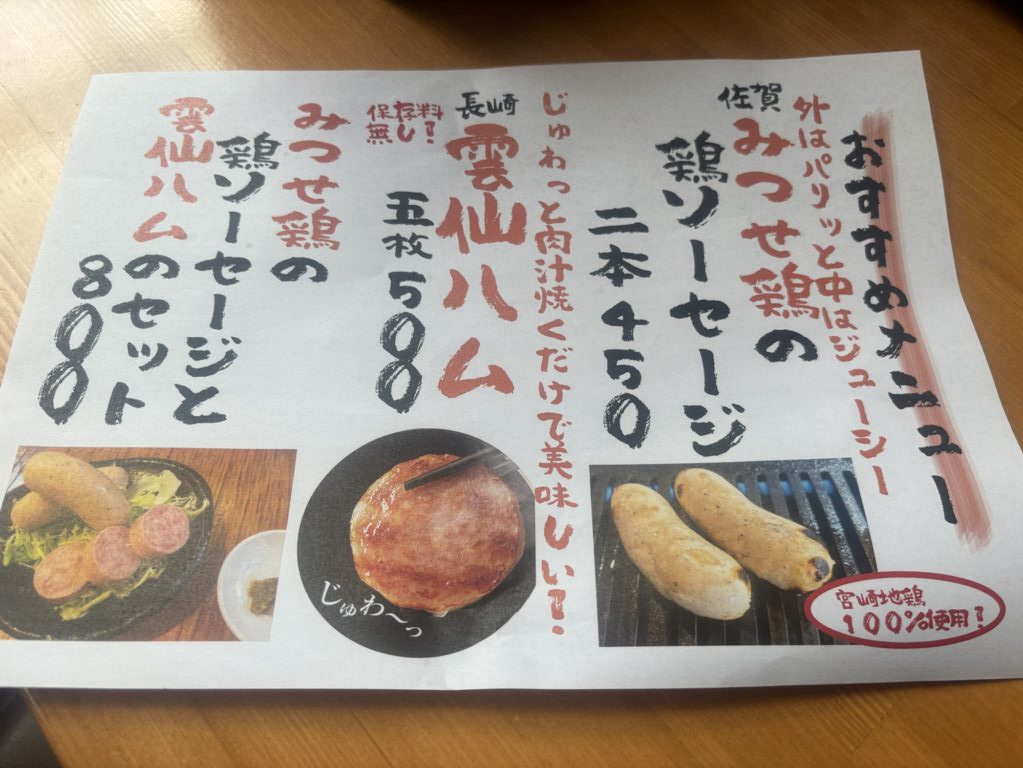 おすすめメニュー
外はパリッと中はジューシー
佐賀
みつせ鶏の
鶏ソーセージ
二本450
宮崎地鶏
100%使用!
じゅわっと肉汁焼くだけで美味しい!
長崎
雲仙ハム
保存料
無し!
五枚500
じゅわ〜っ
みつせ鶏の
鶏ソーセージと
雲仙ハムのセット
800